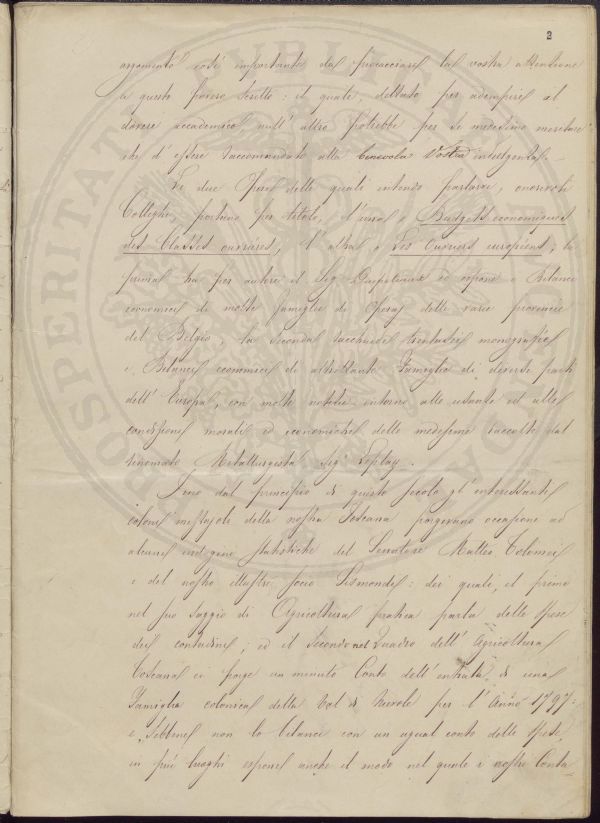 2
argomento così importante dal procacciare la vostra attenzione
a questo povero scritto: il quale, dettato per adempire al
dovere accademico null'altro potrebbe per se medesimo meritare
che d'essere raccomandato alla benevola Vostra indulgenza.
Le due Opere delle quali intendo parlarvi, onorevoli
Colleghi, portano per titolo, l'una Budgets économiques
des Classes ouvrières, l'altra Les Ouvriers européens; la
prima ha per autore il Sig. Ducpetiaux ed espone i Bilanci
economici di molte famiglie di Operaj delle varie provincie
del Belgio, la seconda racchiude trentasei monografie
e Bilanci economici di altrettante Famiglie di diverse parti
dell'Europa, con molte notizie intorno alle usanze ed alle
condizioni morali ed economiche delle medesime raccolte dal
rinomato Metallurgista Sig. Leplay.
Sino dal principio di questo secolo gl'interessanti
coloni mezzajoli della nostra Toscana porgevano occasione ad
alcune indagini statistiche del Senatore Matteo Tolomei
e del nostro illustre socio Sismondi: dei quali, il primo
nel suo saggio di Agricoltura pratica parla delle spese
dei contadini; ed il Secondo nel Quadro dell'Agricoltura
Toscana ci porge un minuto Conto dell'entrata di una
Famiglia colonica della Val di Nievole per l'Anno 1797:
e, Sebbene non lo bilanci con un egual conto delle spese,
in più luoghi espone anche il modo nel quale i nostri Conta
PROSPERITATI PUBLICAE